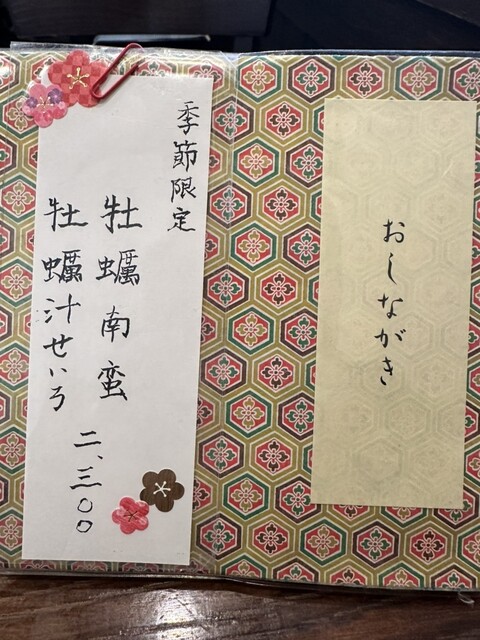 おしながき
季節限定
牡蠣南蛮
牡蠣汁せいろ
二、三〇〇